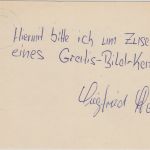 Hiermit bitte ich um Zuse
eines Gratis-Bild-Ken
Siegfried